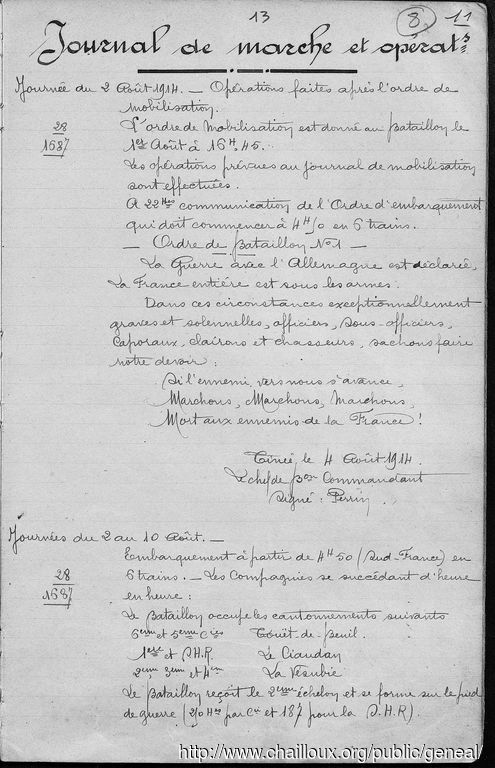 13
8 11
Journal de marche et opérat.ns
Journée du 2 Août 1914. — Opérations faites après l'ordre de
mobilisation.
28
1687
L'ordre de Mobilisation est donné au Bataillon le
1er Août à 16H,45.
Les opérations prévues au Journal de mobilisation
sont effectuées.
A 22Hes communication de l'Ordre d'embarquement
qui doit commencer à 4H50 en 6 trains.
— Ordre de Bataillon No 1 —
La Guerre avec l'Allemagne est déclarée,
La France entière est sous les armes.
Dans ces circonstances exceptionnellement
graves et solennelles, officiers, sous-officiers,
caporaux, clairons et chasseurs, sachons faire
notre devoir :
Si l'ennemi, vers nous s'avance,
Marchons, Marchons, Marchons,
Mort aux ennemis de la France !
le 4 Août 1914.
Le chef de Bon Commandant
Signé : Perrin.
Journées du 2 au 10 Août. —
28
1687
Embarquement à partir de 4H50 (Sud-France) en
6 trains. — Les Compagnies se succédant d'heure
en heure :
Le Bataillon occupe les cantonnements suivants
6eme et 5eme Cies Touët-de-Beuil.
1ere et S.H.R. Le Ciaudan
2eme 3eme et 4eme La Vésubie
Le Bataillon reçoit le 2eme échelon et se forme sur le pied
de guerre (210 Hes par Cie et 187 pour la S.H.R).
http://www.chailloux.org/public/geneal/